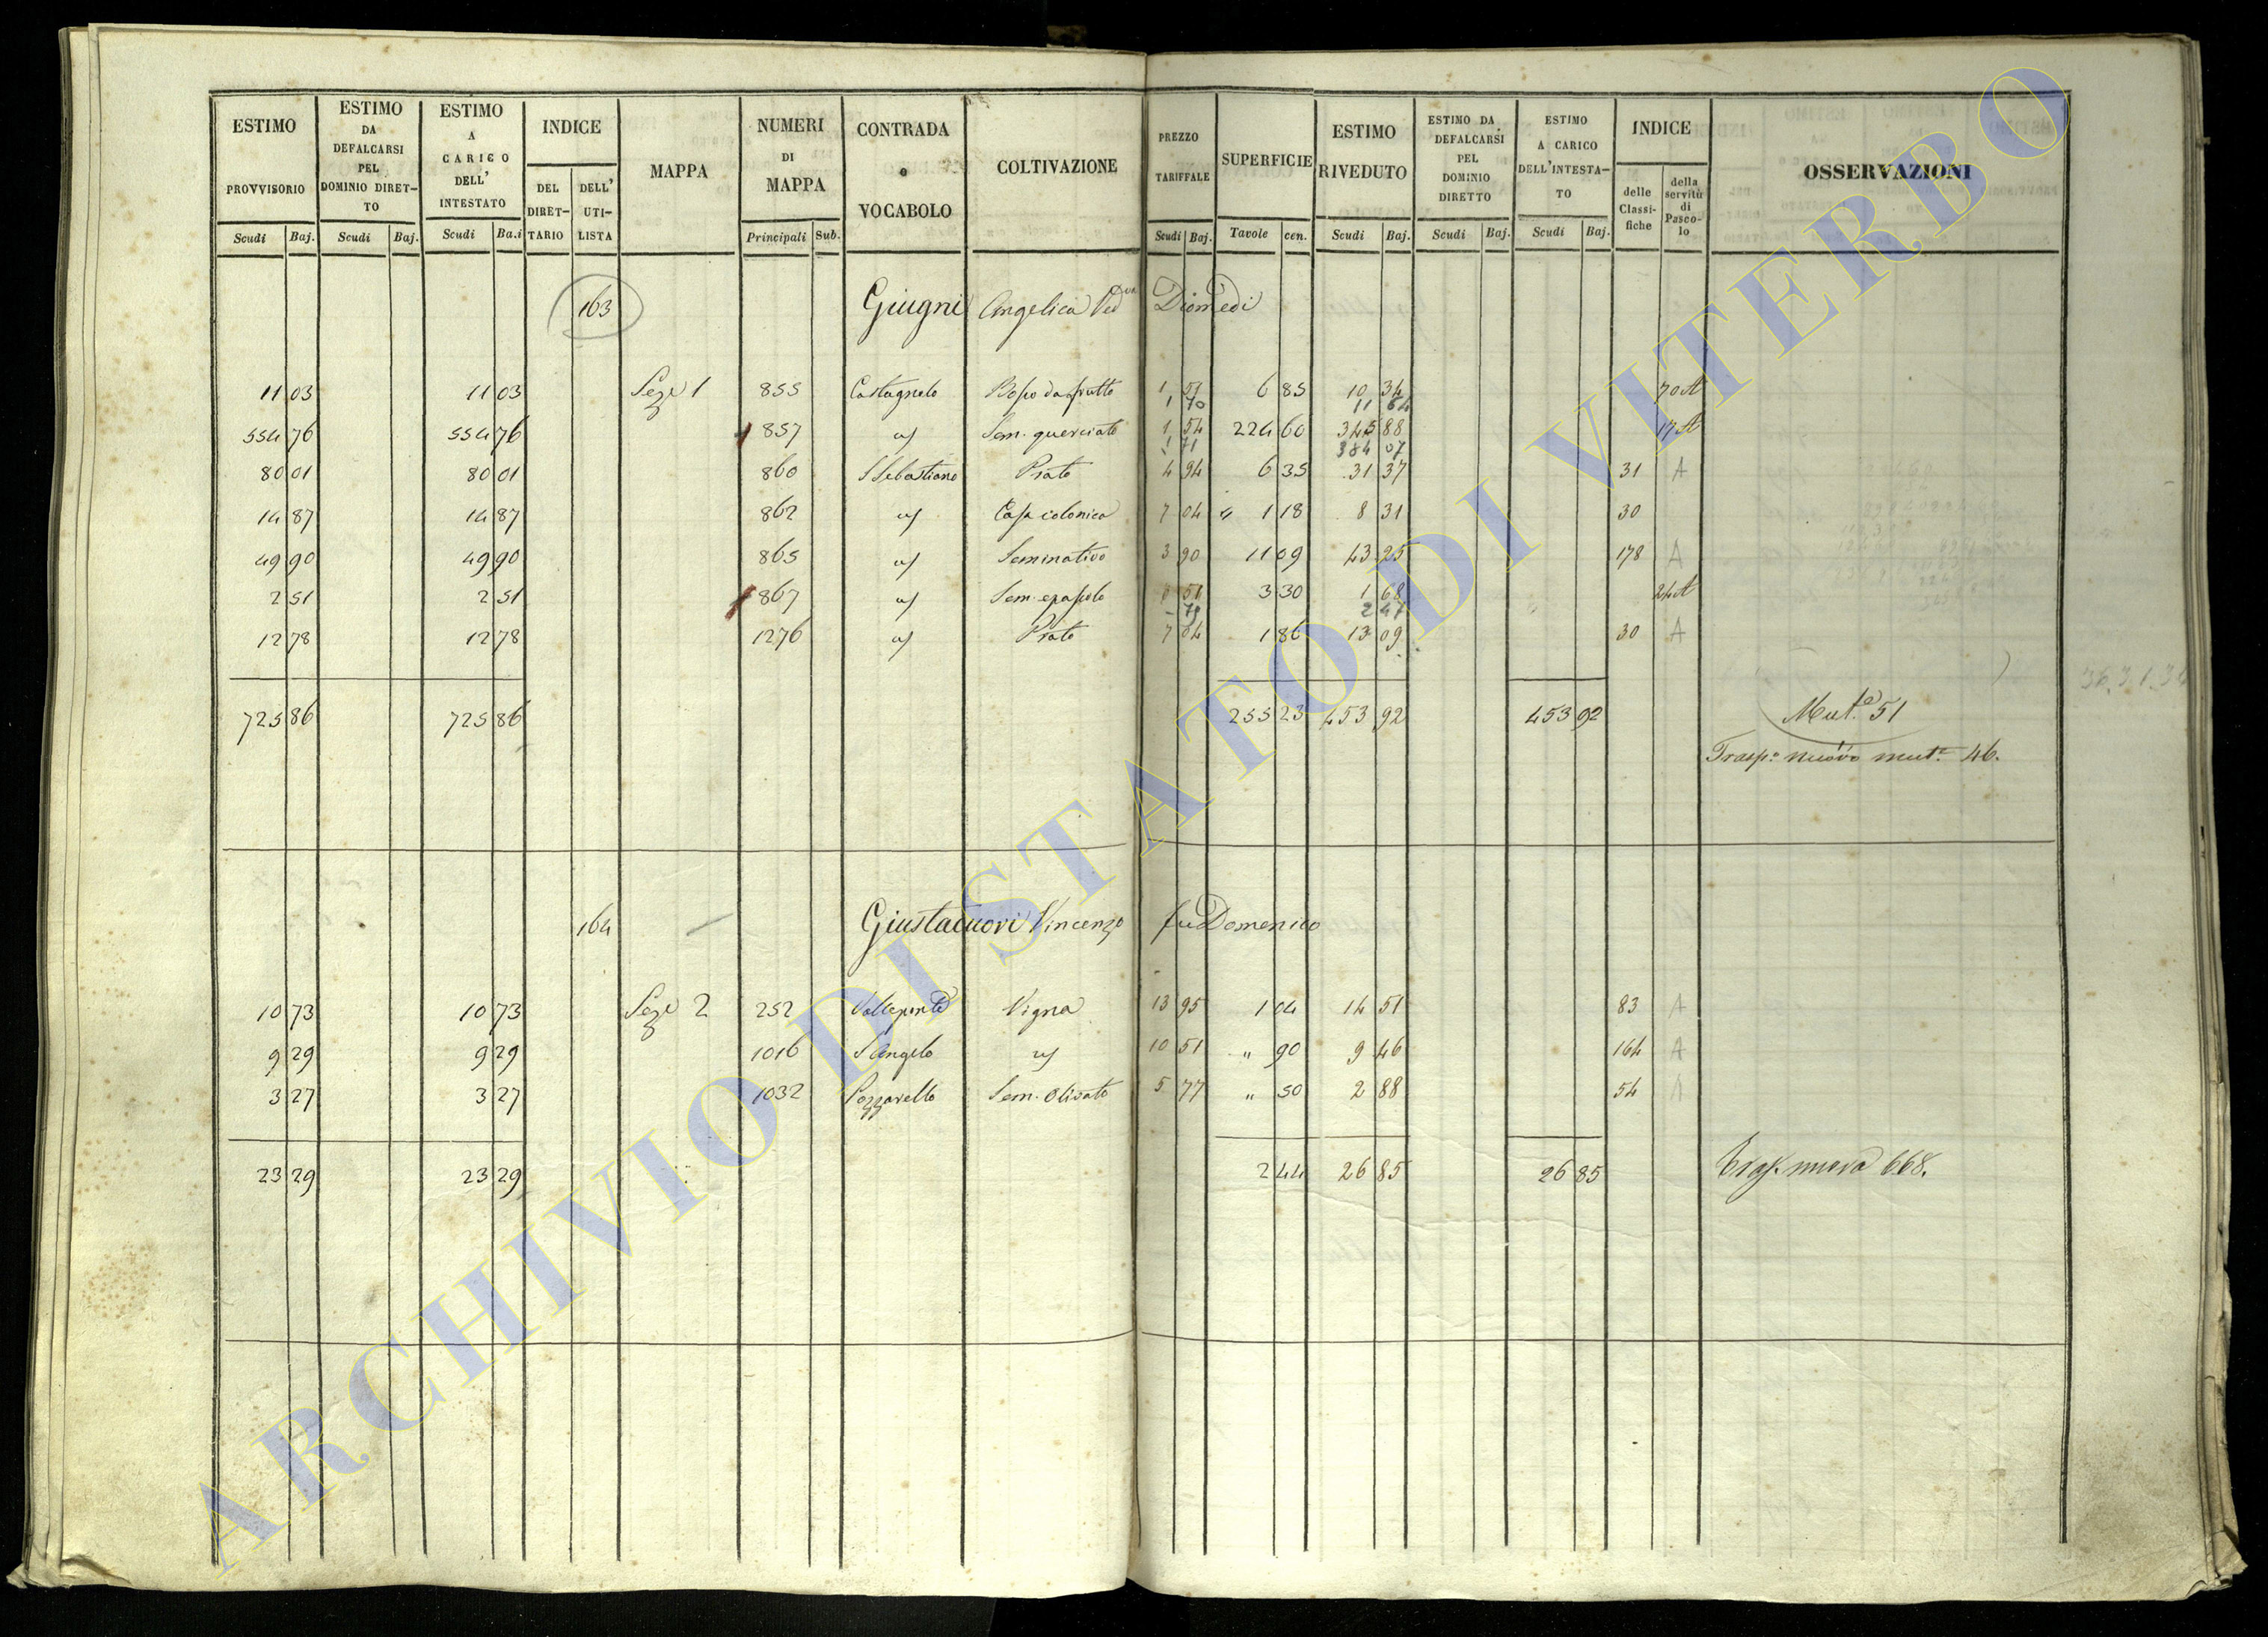 ESTIMO PROVVISORIO
Scudi Baj.
ESTIMO DA DEFALCARSI PEL DOMINIO DIRET-TO
Scudi Baj.
ESTIMO A CARICO DELL' INTESTATO
Scudi Ba.i
INDICE
DEL DIRET-TARIO
DELL' UTI-LISTA
MAPPA
NUMERI DI MAPPA
Principali Sub.
CONTRADA o VOCABOLO
COLTIVAZIONE
PREZZO TARIFFALE
Scudi Baj.
SUPERFICIE
Tavole cen.
ESTIMO RIVEDUTO
Scudi Baj.
ESTIMO DA DEFALCARSI PEL DOMINIO DIRETTO
Scudi Baj.
ESTIMO A CARICO DELL'INTESTA-TO
Scudi Baj.
INDICE
delle Classi-fiche
della servitù di Pasco-lo
OSSERVAZIONI
163 Giugni Angelica Ved Diomedi
11 03 11 03 Seze 1 855 Castagnolo Bosco da frutto 1 51 6 85 10 34 70 A
1 70 11 64
554 76 554 76 857 " Sem. querciato 1 54 224 60 345 88 17 A
1 71 384 07
80 01 80 01 860 S Sebastiano Prato 4 94 6 35 31 37 31 A
14 87 14 87 862 " Casa colonica 7 04 " 1 18 8 31 30
49 90 49 90 865 " Seminativo 3 90 11 09 43 25 178 A
2 51 2 51 867 " Sem. e pascolo 51 3 30 1 68 24 A
2 47
12 78 12 78 1276 " Prato 7 04 1 86 13 09 30 A
725 86 725 86 255 23 453 92 453 92 Mut.e 51
Trasp.o nuovo mut.e 46.
164 Giustacuori Vincenzo fu Domenico
10 73 10 73 Seze 2 252 Valleponte Vigna 13 95 1 04 14 51 83 A
9 29 9 29 1016 S Angelo " 10 51 " 90 9 46 164 A
3 27 3 27 1032 Pozzarello Sem. Olivato 5 77 " 50 2 88 54 A
23 29 23 29 2 44 26 85 26 85 nuova 668.
ARCHIVIO DI STATO DI VITERBO